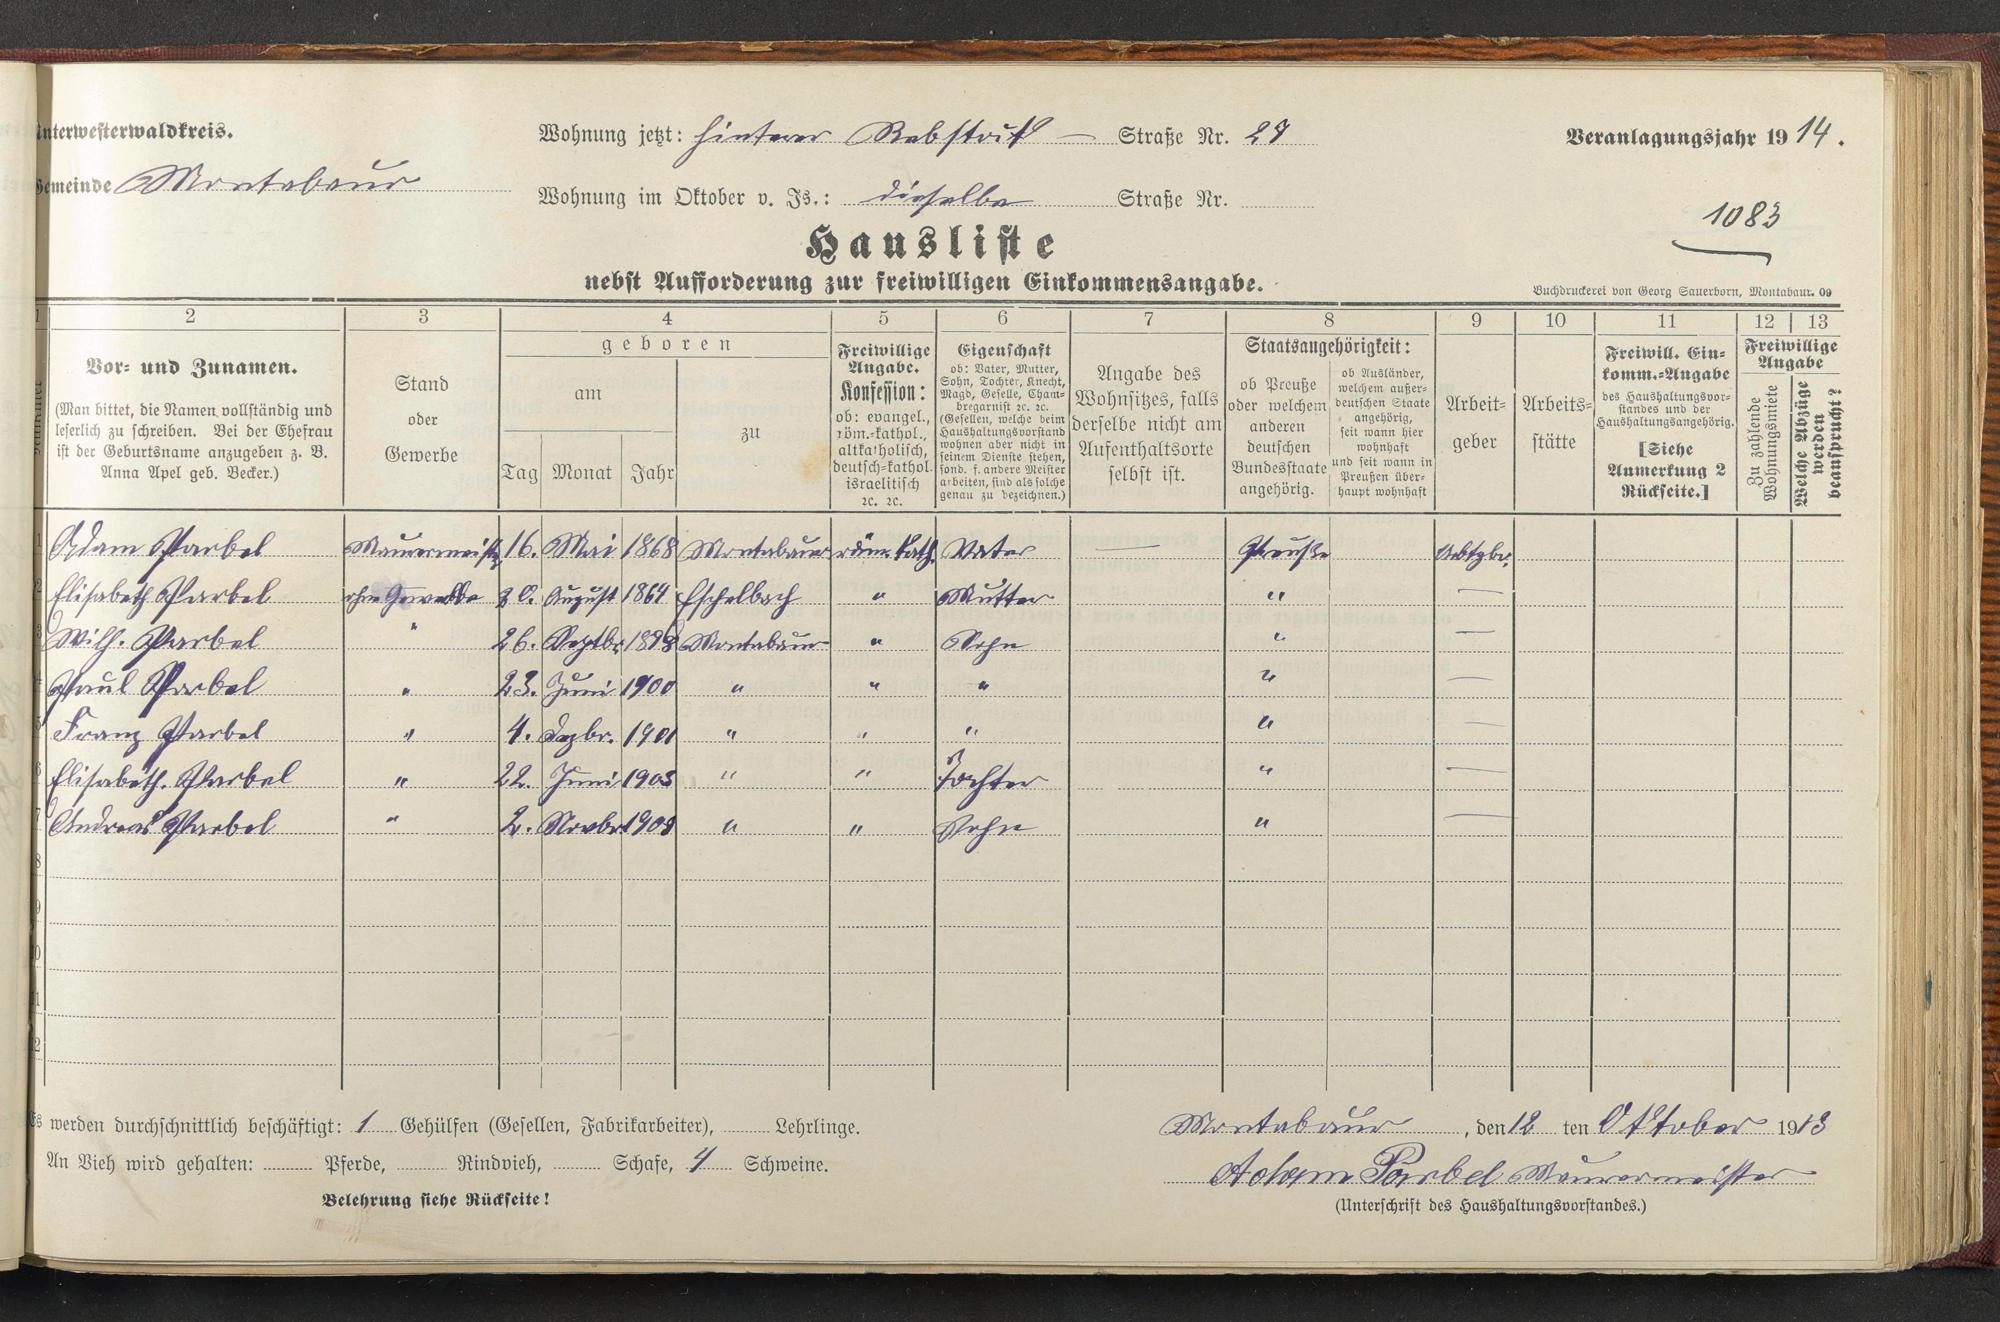 Unterwesterwaldkreis.
Wohnung jetzt: hinterer Rebstock — Straße Nr. 27
Veranlagungsjahr 1914.
Gemeinde Montabaur
Wohnung im Oktober v. Js.: dieselbe Straße Nr.
1083
Hausliste
nebst Aufforderung zur freiwilligen Einkommensangabe.
Buchdruckerei von Georg Sauerborn, Montabaur. 09
1 2 3 4 5 6 7 8 9 10 11 12 13
Vor- und Zunamen.
(Man bittet, die Namen vollständig und
leserlich zu schreiben. Bei der Ehefrau
ist der Geburtsname anzugeben z. B.
Anna Apel geb. Becker.)
Stand
oder
Gewerbe
geboren
am
Tag Monat Jahr
zu
Freiwillige
Angabe.
Konfession:
ob: evangel.,
röm.-kathol.,
altkatholisch,
deutsch-kathol.
israelitisch
ec. ec.
Eigenschaft
ob: Vater, Mutter,
Sohn, Tochter, Knecht,
Magd, Geselle, Cham-
bregarnist ec. ec.
(Gesellen, welche beim
Haushaltungsvorstand
wohnen aber nicht in
seinem Dienste stehen,
sond. f. andere Meister
arbeiten, sind als solche
genau zu bezeichnen.)
Angabe des
Wohnsitzes, falls
derselbe nicht am
Aufenthaltsorte
selbst ist.
Staatsangehörigkeit:
ob Preuße
oder welchem
anderen
deutschen
Bundesstaate
angehörig.
ob Ausländer,
welchem außer-
deutschen Staate
angehörig,
seit wann hier
wohnhaft
und seit wann in
Preußen über-
haupt wohnhaft
Arbeit-
geber
Arbeits-
stätte
Freiwill. Ein-
komm.-Angabe
des Haushaltungsvor-
standes und der
Haushaltungsangehörig.
[Siehe
Anmerkung 2
Rückseite.]
Freiwillige
Angabe
Zu zahlende
Wohnungsmiete
Welche Abzüge
werden
beansprucht?
1 Adam Parbel Maurermeister 16. Mai 1868 Montabaur röm. kath. Vater — Preuße Arbtgbr.
2 Elisabeth Parbel ohne Gewerbe 20. August 1864 Eschelbach " Mutter " —
3 Wilh. Parbel " 26. Septbr. 1898 Montabaur " Sohn " —
4 Paul Parbel " 23. Juni 1900 " " " " —
5 Franz Parbel " 4. Dezbr. 1901 " " " " —
6 Elisabeth. Parbel " 22. Juni 1903 " " Tochter " —
7 Andreas Parbel " 2. Novbr. 1908 " " Sohn " —
8
9
10
11
12
Es werden durchschnittlich beschäftigt: 1 Gehülfen (Gesellen, Fabrikarbeiter), Lehrlinge.
Montabaur, den 12 ten Oktober 1913
An Vieh wird gehalten: Pferde, Rindvieh, Schafe, 4 Schweine.
Adam Parbel Maurermeister
Belehrung siehe Rückseite!
(Unterschrift des Haushaltungsvorstandes.)